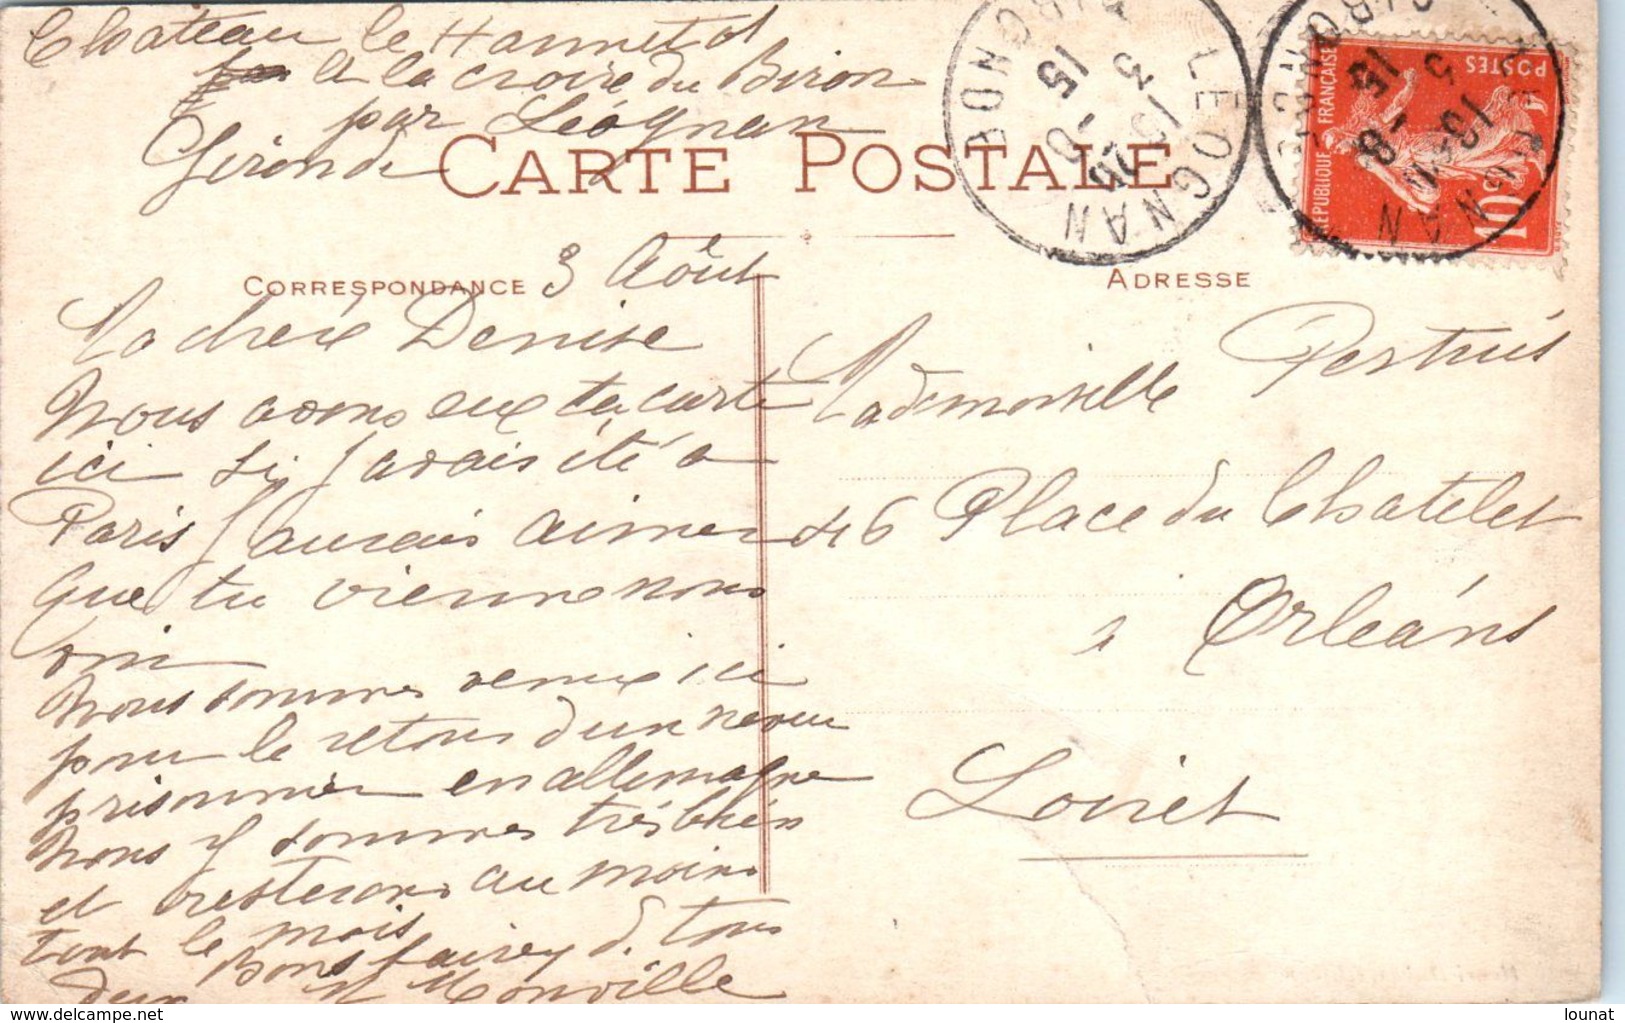 Chateau le Hannetot
à la croix du Biron
par Léognan
Gironde
CARTE POSTALE
LEOGNAN
GIRONDE
15
3
-8
15
REPUBLIQUE FRANÇAISE
POSTES
10c
CORRESPONDANCE
3 Août
ADRESSE
Ma chere Denise
Nous avons eue ta carte
ici si j'avais été a
Paris j'aurais aimer
que tu vienne nous
voir
Nous sommes venue ici
pour le retour d'un neveu
prisonnier en allemagne
Nous y sommes très bien
et resterons au moins
tout le mois
Bons baisers de tous
deux M Monville
Mademoiselle Pertuis
46 Place du Chatelet
à Orléans
Loiret
delcampe.net
lounat